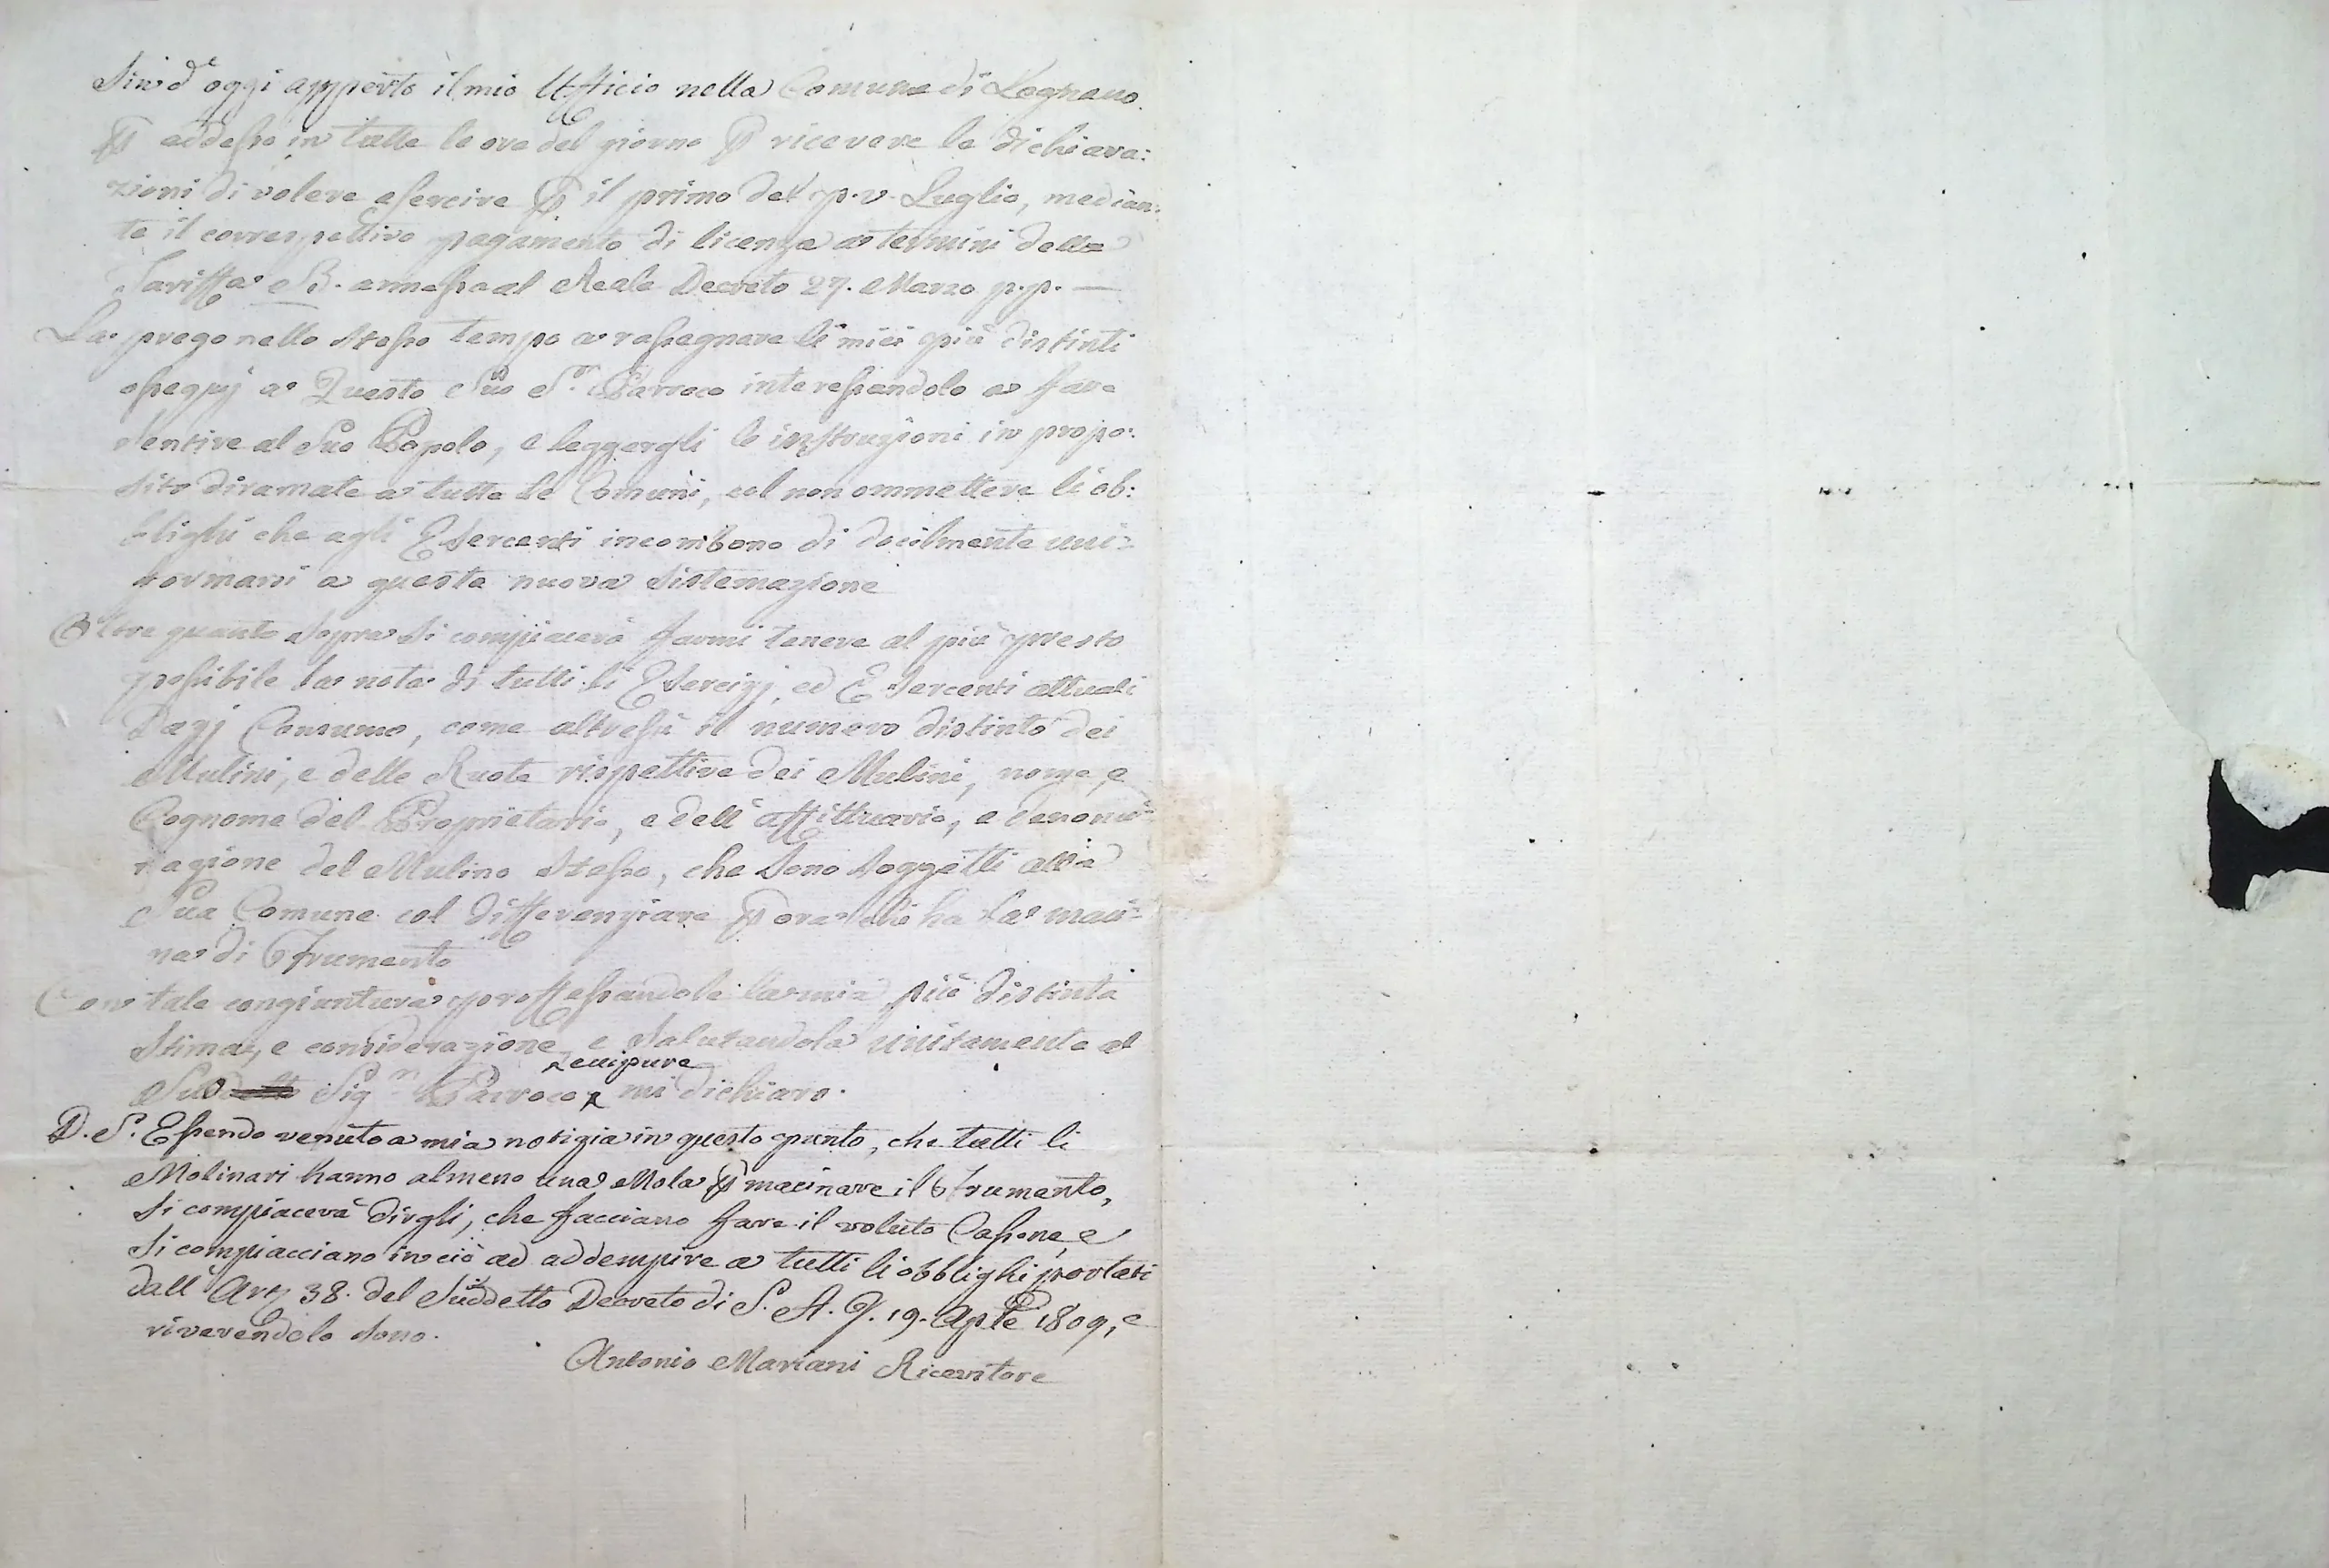 Sin d'oggi apperto il mio Ufficio nella Comune di Legnano
ꝑ addesso in tutte le ore del giorno ꝑ ricevere le dichiara:
zioni di volere esercire ꝑ il primo del p.v. Luglio, median:
te il correspettivo pagamento di licenza a' termini della
Tariffa B. annessa al Reale Decreto 27. Marzo p.p. —
La prego nello stesso tempo a rassegnare li miei più distinti
ossequj a Questo Suo S.r Parroco interessandolo a fare
sentire al Suo Popolo, e leggergli le instruzioni in propo:
sito diramate a tutte le Comuni, col non ommettere li ob:
blighi che agli Esercenti incombono di docilmente uni:
formarsi a questa nuova Sistemazione
Oltre quanto sopra si compiacerà farmi tenere al più presto
possibile la nota di tutti li Esercizj, ed Esercenti attuali
Dazj Consumo, come altresì il numero distinto dei
Mulini, e delle Ruote rispettive dei Mulini, nome, e
Cognome del Proprietario, e dell'affittuario, e denomi:
nazione del Mulino Stesso, che sono soggetti alla
Sua Comune col differenziare ꝑ ora chi ha la maci:
na di Frumento
Con tale congiuntura proffessandole la mia più distinta
Stima, e considerazione, e salutandola unitamente al
Suo Sig.r Parroco mi dichiaro.
P.S. Essendo venuto a mia notizia in questo punto, che tutti li
Molinari hanno almeno una Mola ꝑ macinare il Frumento,
si compiacerà dirgli, che facciano fare il voluto Cassone, e
si compiacciano in ciò ad addempire a tutti li obblighi portati
dall'Art. 38. del Suddetto Decreto di S. A. I. 19. Aple 1809, e
riverendolo sono.
Antonio Mariani Ricevitore